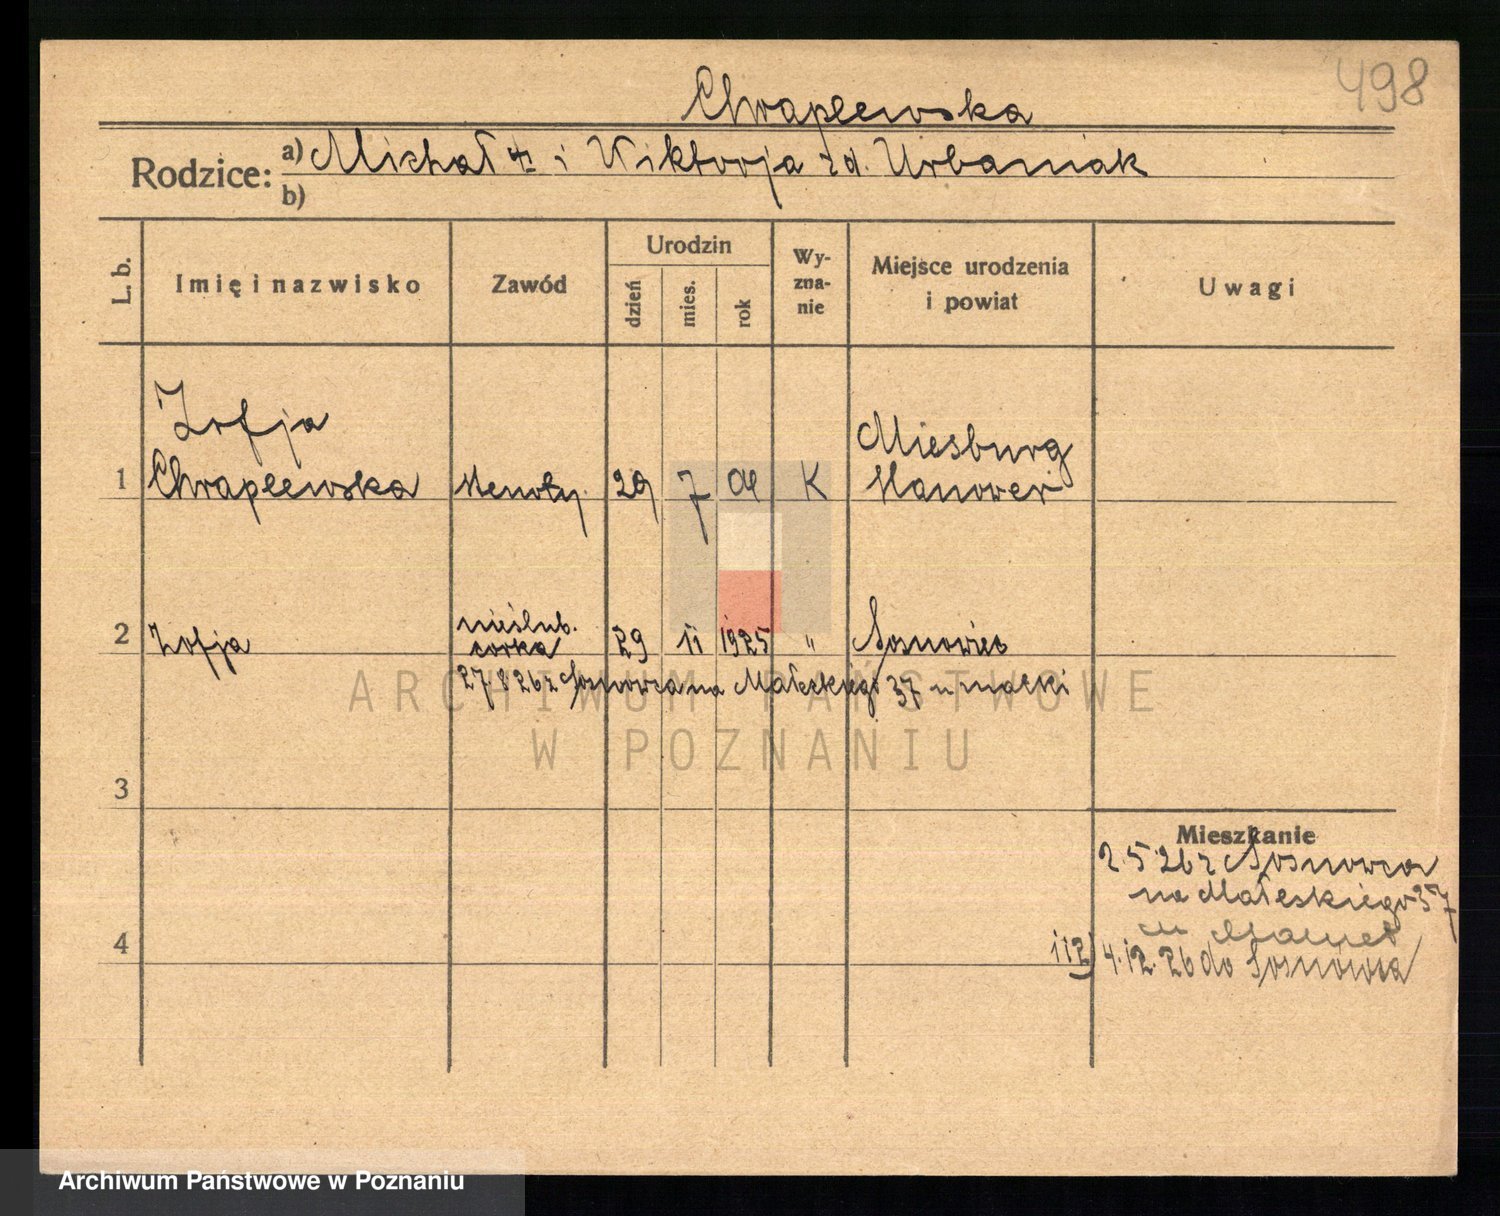 498
Chraplewska
Rodzice: a) Michał i Wiktorja zd. Urbaniak
b)
L. b.
Imię i nazwisko
Zawód
Urodzin
dzień
mies.
rok
Wy-
zna-
nie
Miejsce urodzenia
i powiat
Uwagi
Zofja
1 Chraplewska 29 7 K Miesburg
Hanower
nieślub.
2 Zofja córka 29 11 1925 " Sosnowiec
27 8 26 z Sosnowca na Małeckiego 37 u matki
3
Mieszkanie
2.5.26 z Sosnowca
na Małeckiego 37
4
112) 4.12.26 do Sosnowca
ARCHIWUM PAŃSTWOWE
W POZNANIU
Archiwum Państwowe w Poznaniu